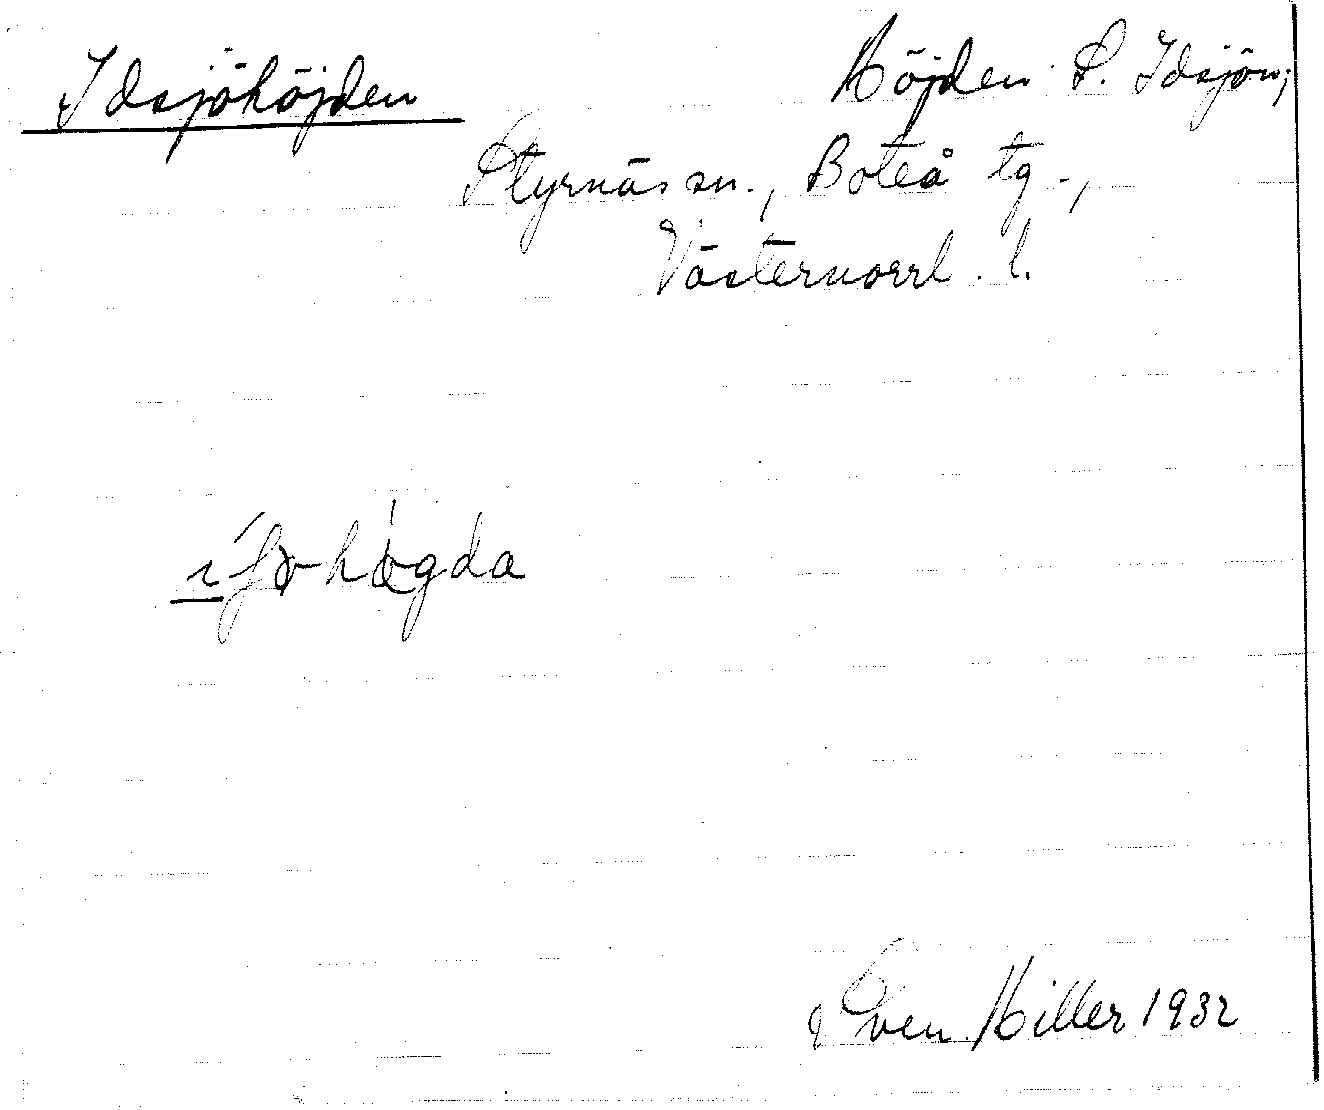 Idsjöhöjden
Höjden S. Idsjön;
Styrnäs sn., Boteå tg.,
Västernorrl. l.
Sven Hiller 1932